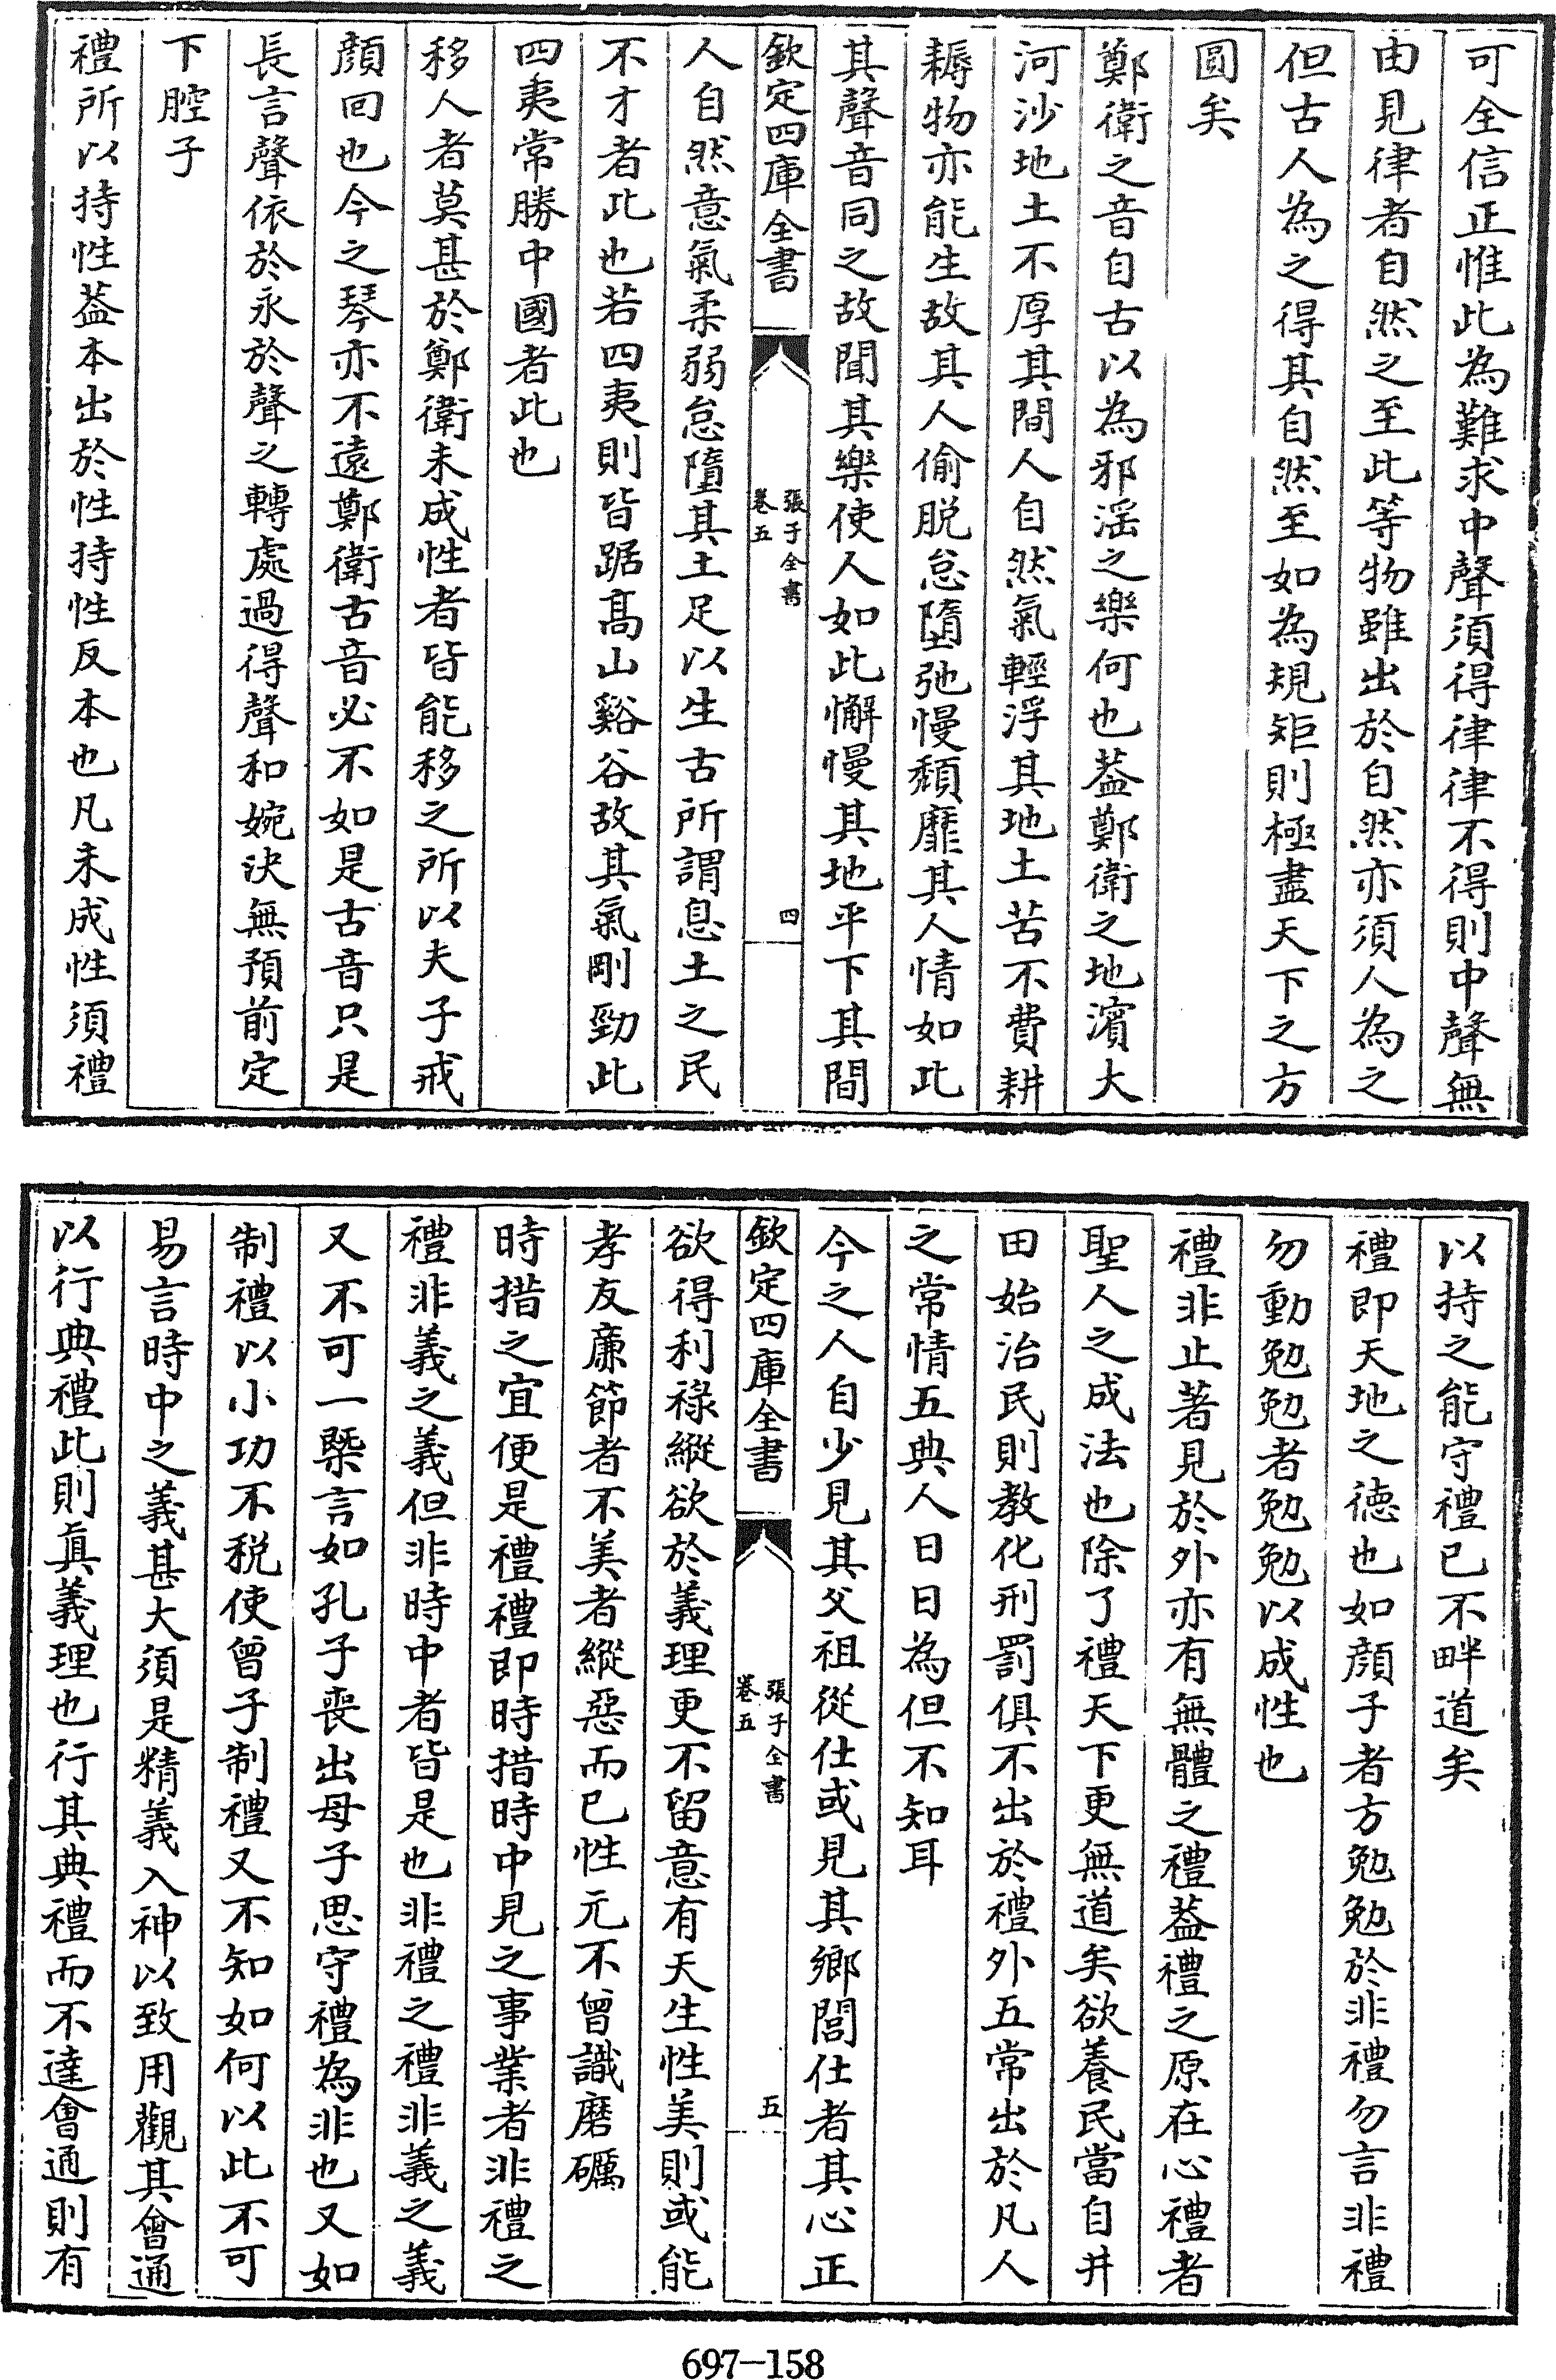 可全信正惟此為難求中聲須得律律不得則中聲無
由見律者自然之至此等物雖出於自然亦須人為之
但古人為之得其自然至如為規矩則極盡天下之方
圓矣
鄭衛之音自古以為邪淫之樂何也葢鄭衛之地濱大
河沙地土不厚其間人自然氣輕浮其地土苦不費耕
耨物亦能生故其人偷脱怠墮弛慢頹靡其人情如此
其聲音同之故聞其樂使人如此懈慢其地平下其間
欽定四庫全書
張子全書
卷五
四
人自然意氣柔弱怠墮其土足以生古所謂息土之民
不才者此也若四夷則皆踞髙山谿谷故其氣剛勁此
四夷常勝中國者此也
移人者莫甚於鄭衛未成性者皆能移之所以夫子戒
顔回也今之琴亦不遠鄭衛古音必不如是古音只是
長言聲依於永於聲之轉處過得聲和婉決無預前定
下腔子
禮所以持性葢本出於性持性反本也凡未成性須禮
以持之能守禮已不畔道矣
禮即天地之徳也如顔子者方勉勉於非禮勿言非禮
勿動勉勉者勉勉以成性也
禮非止著見於外亦有無體之禮葢禮之原在心禮者
聖人之成法也除了禮天下更無道矣欲養民當自井
田始治民則教化刑罰俱不出於禮外五常出於凡人
之常情五典人日日為但不知耳
今之人自少見其父祖從仕或見其鄉閭仕者其心正
欽定四庫全書
張子全書
卷五
五
欲得利祿縱欲於義理更不留意有天生性美則或能
孝友廉節者不美者縱惡而已性元不曾識磨礪
時措之宜便是禮禮即時措時中見之事業者非禮之
禮非義之義但非時中者皆是也非禮之禮非義之義
又不可一槩言如孔子喪出母子思守禮為非也又如
制禮以小功不税使曾子制禮又不知如何以此不可
易言時中之義甚大須是精義入神以致用觀其會通
以行典禮此則真義理也行其典禮而不達會通則有
697-158